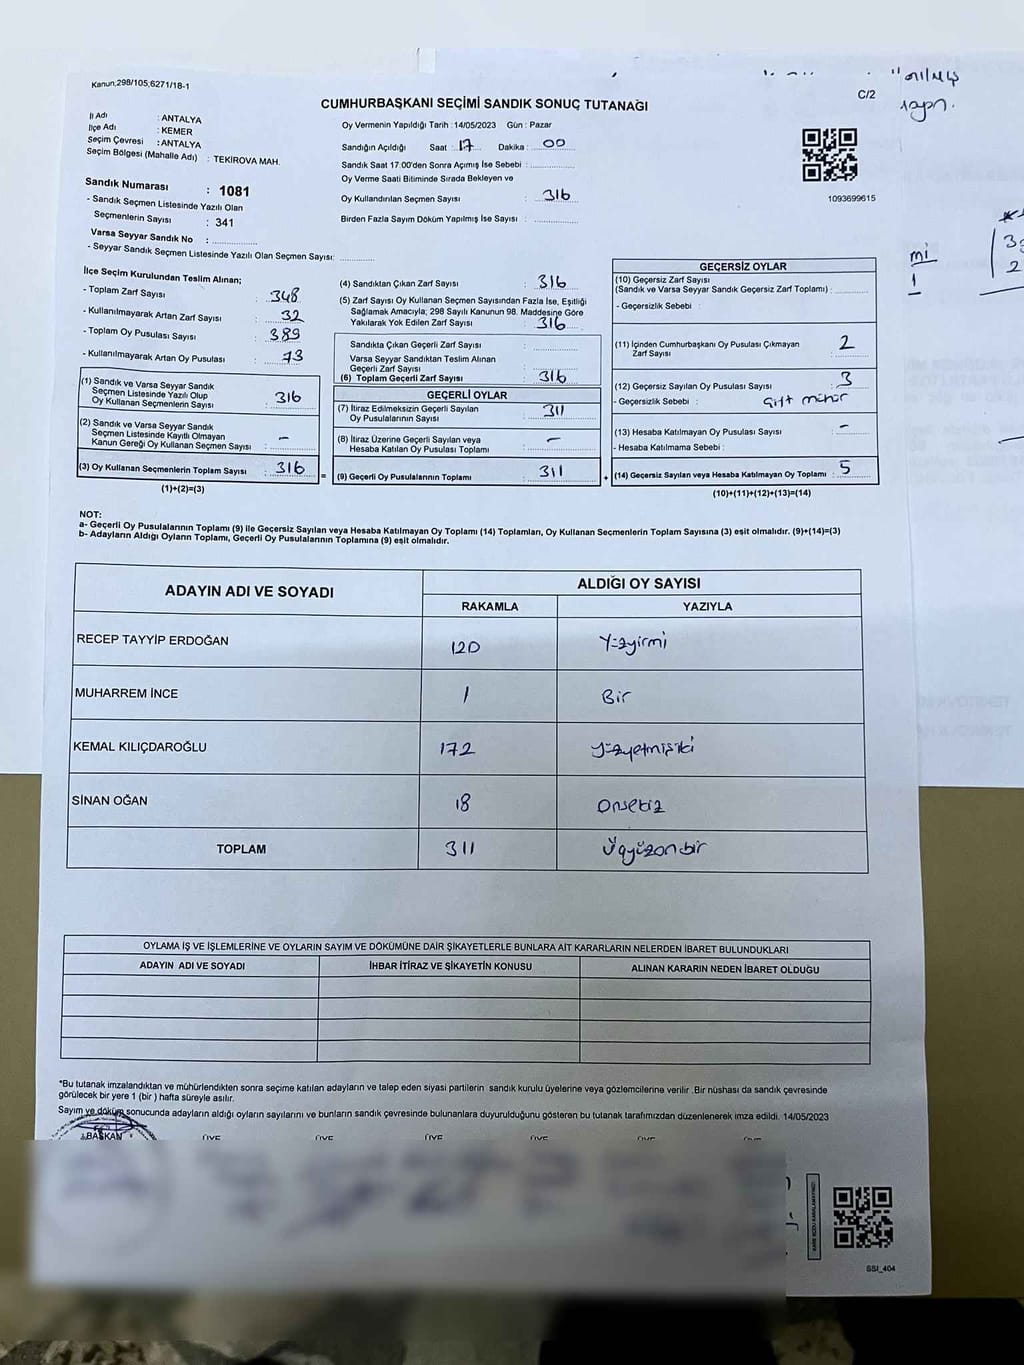 Kanun;298/105,6271/18-1
CUMHURBAŞKANI SEÇİMİ SANDIK SONUÇ TUTANAĞI
C/2
İl Adı : ANTALYA
İlçe Adı : KEMER
Seçim Çevresi : ANTALYA
Seçim Bölgesi (Mahalle Adı) : TEKİROVA MAH.
Sandık Numarası : 1081
- Sandık Seçmen Listesinde Yazılı Olan
Seçmenlerin Sayısı : 341
Varsa Seyyar Sandık No :
- Seyyar Sandık Seçmen Listesinde Yazılı Olan Seçmen Sayısı:
Oy Vermenin Yapıldığı Tarih :14/05/2023 Gün : Pazar
Sandığın Açıldığı Saat : 17 Dakika : 00
Sandık Saat 17.00'den Sonra Açımış İse Sebebi :
Oy Verme Saati Bitiminde Sırada Bekleyen ve
Oy Kullandırılan Seçmen Sayısı : 316
Birden Fazla Sayım Döküm Yapılmış İse Sayısı :
1093699615
İlçe Seçim Kurulundan Teslim Alınan;
- Toplam Zarf Sayısı : 348
- Kullanılmayarak Artan Zarf Sayısı : 32
- Toplam Oy Pusulası Sayısı : 389
- Kullanılmayarak Artan Oy Pusulası : 73
(1) Sandık ve Varsa Seyyar Sandık
Seçmen Listesinde Yazılı Olup
Oy Kullanan Seçmenlerin Sayısı : 316
(2) Sandık ve Varsa Seyyar Sandık
Seçmen Listesinde Kayıtlı Olmayan
Kanun Gereği Oy Kullanan Seçmen Sayısı : -
(3) Oy Kullanan Seçmenlerin Toplam Sayısı : 316
(1)+(2)=(3)
=
(4) Sandıktan Çıkan Zarf Sayısı : 316
(5) Zarf Sayısı Oy Kullanan Seçmen Sayısından Fazla İse, Eşitliği
Sağlamak Amacıyla; 298 Sayılı Kanunun 98. Maddesine Göre
Yakılarak Yok Edilen Zarf Sayısı : 316
Sandıkta Çıkan Geçerli Zarf Sayısı :
Varsa Seyyar Sandıktan Teslim Alınan
Geçerli Zarf Sayısı :
(6) Toplam Geçerli Zarf Sayısı : 316
GEÇERLİ OYLAR
(7) İtiraz Edilmeksizin Geçerli Sayılan
Oy Pusulalarının Sayısı : 311
(8) İtiraz Üzerine Geçerli Sayılan veya
Hesaba Katılan Oy Pusulası Toplamı : -
(9) Geçerli Oy Pusulalarının Toplamı : 311
+
GEÇERSİZ OYLAR
(10) Geçersiz Zarf Sayısı
(Sandık ve Varsa Seyyar Sandık Geçersiz Zarf Toplamı) :
- Geçersizlik Sebebi :
(11) İçinden Cumhurbaşkanı Oy Pusulası Çıkmayan
Zarf Sayısı : 2
(12) Geçersiz Sayılan Oy Pusulası Sayısı : 3
- Geçersizlik Sebebi : çift mühür
(13) Hesaba Katılmayan Oy Pusulası Sayısı : -
- Hesaba Katılmama Sebebi :
(14) Geçersiz Sayılan veya Hesaba Katılmayan Oy Toplamı : 5
(10)+(11)+(12)+(13)=(14)
NOT:
a- Geçerli Oy Pusulalarının Toplamı (9) ile Geçersiz Sayılan veya Hesaba Katılmayan Oy Toplamı (14) Toplamları, Oy Kullanan Seçmenlerin Toplam Sayısına (3) eşit olmalıdır. (9)+(14)=(3)
b- Adayların Aldığı Oyların Toplamı, Geçerli Oy Pusulalarının Toplamına (9) eşit olmalıdır.
ADAYIN ADI VE SOYADI
ALDIĞI OY SAYISI
RAKAMLA YAZIYLA
RECEP TAYYİP ERDOĞAN 120 Yüzyirmi
MUHARREM İNCE 1 Bir
KEMAL KILIÇDAROĞLU 172 yüzyetmişiki
SİNAN OĞAN 18 Onsekiz
TOPLAM 311 Üçyüzonbir
OYLAMA İŞ VE İŞLEMLERİNE VE OYLARIN SAYIM VE DÖKÜMÜNE DAİR ŞİKAYETLERLE BUNLARA AİT KARARLARIN NELERDEN İBARET BULUNDUKLARI
ADAYIN ADI VE SOYADI İHBAR İTİRAZ VE ŞİKAYETİN KONUSU ALINAN KARARIN NEDEN İBARET OLDUĞU
*Bu tutanak imzalandıktan ve mühürlendikten sonra seçime katılan adayların ve talep eden siyasi partilerin sandık kurulu üyelerine veya gözlemcilerine verilir .Bir nüshası da sandık çevresinde
görülecek bir yere 1 (bir ) hafta süreyle asılır.
Sayım ve döküm sonucunda adayların aldığı oyların sayılarını ve bunların sandık çevresinde bulunanlara duyurulduğunu gösteren bu tutanak tarafımızdan düzenlenerek imza edildi. 14/05/2023
BAŞKAN ÜYE ÜYE ÜYE ÜYE ÜYE ÜYE
SSI_404
mi
1